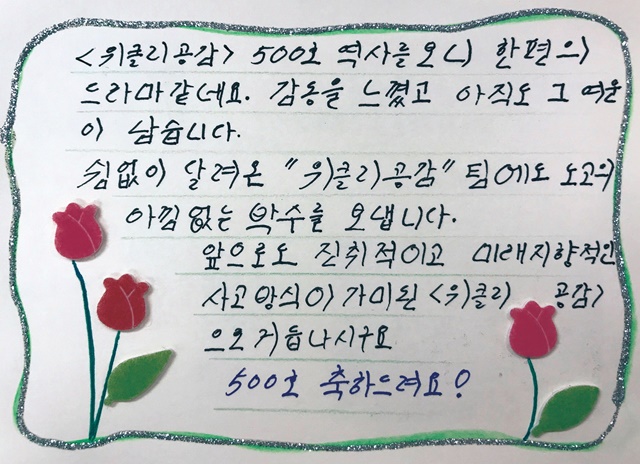 <위클리공감> 500호 역사를 보니 한편의
드라마 같네요. 감동을 느꼈고 아직도 그 여운
이 남습니다.
쉼없이 달려온 "위클리공감" 팀에도 노고의
아낌없는 박수를 보냅니다.
앞으로도 진취적이고 미래지향적인
사고방식이 가미된 <위클리 공감>
으로 거듭나시구요
500호 축하드려요!